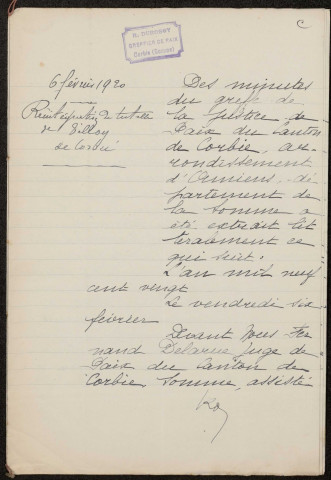 C
GREFFIER DE PAIX
Corbie (Somme)
6 février 1920
de tutelle
de
Des minutes
du greffe de
la Justice de
Paix du Canton
de Corbie, ar-
rondissement
d'Amiens, dé
partement de
la Somme a
été extrait lit
téralement ce
qui suit:
L'an mil neuf
cent vingt
Le vendredi six
février
Devant Nous Fer
nand Delarue Juge de
Paix du Canton de
Corbie Somme, assisté